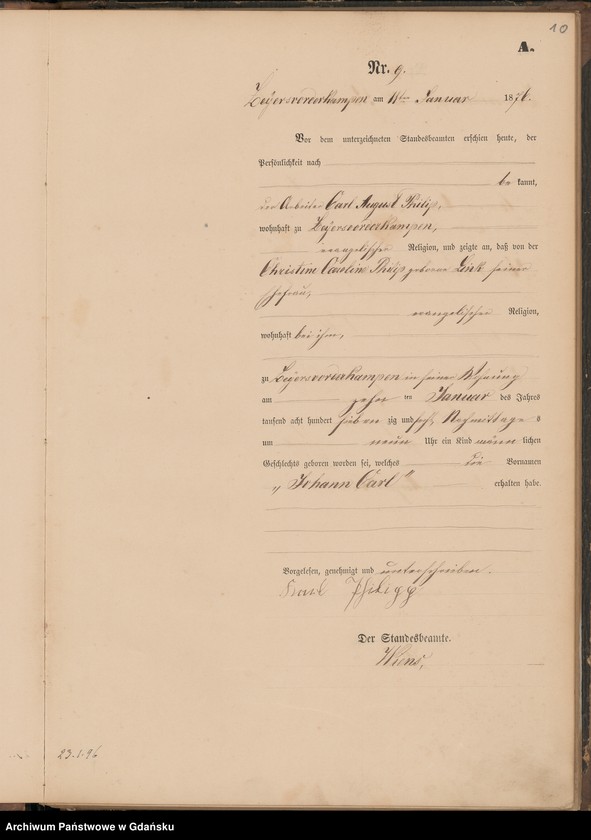 10
A.
Nr. 9.
Zeyersvorderkampen am 11ten Januar 1876.
Vor dem unterzeichneten Standesbeamten erschien heute, der
Persönlichkeit nach
be kannt,
der Arbeiter Carl August Philip,
wohnhaft zu Zeyersvorderkampen,
evangelischer Religion, und zeigte an, daß von der
Christine Caroline Philip geborene Link seiner
Ehefrau,
evangelischer Religion,
wohnhaft bei ihm,
zu Zeyersvorderkampen in seiner Wohnung
am zehn ten Januar des Jahres
tausend acht hundert sieben zig und sechs Nachmittags
um neun Uhr ein Kind männ lichen
Geschlechts geboren worden sei, welches die Vornamen
„Johann Carl" erhalten habe.
Vorgelesen, genehmigt und unterschrieben.
Karl Philipp
Der Standesbeamte.
Wiens,
23.1.96
Archiwum Państwowe w Gdańsku